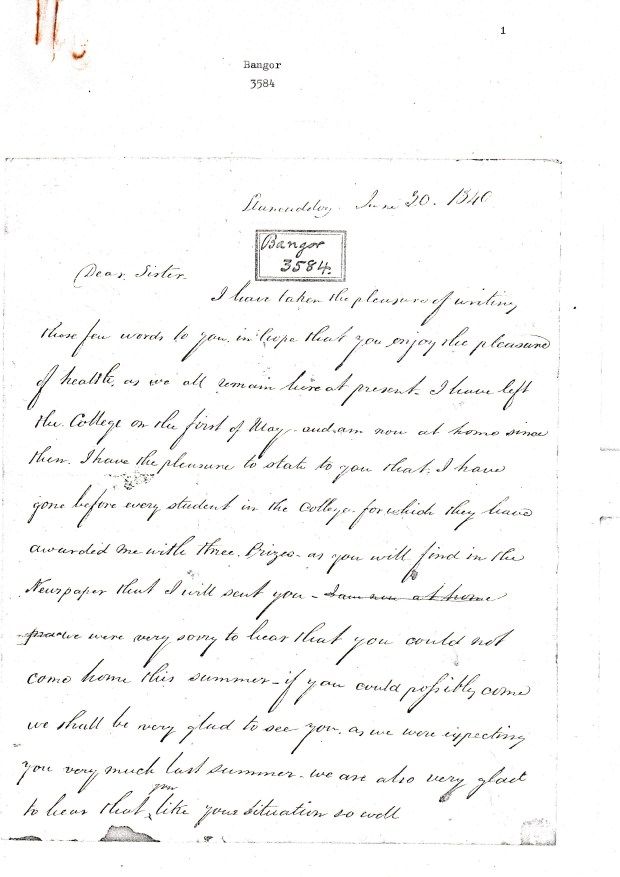 1
Bangor
3584
June 30. 1840
Bangor
3584.
Dear Sister
I have taken the pleasure of writing
those few words to you in hope that you enjoy the pleasure
of health, as we all remain here at present. I have left
the College on the first of May and am now at home since
then. I have the pleasure to state to you that I have
gone before every student in the College for which they have
awarded me with three Prizes as you will find in the
Newspaper that I will sent you - I am now at home
we were very sorry to hear that you could not
come home this summer - if you could possibly come
we shall be very glad to see you, as we were expecting
you very much last summer - we are also very glad
to hear that you like your situation so well